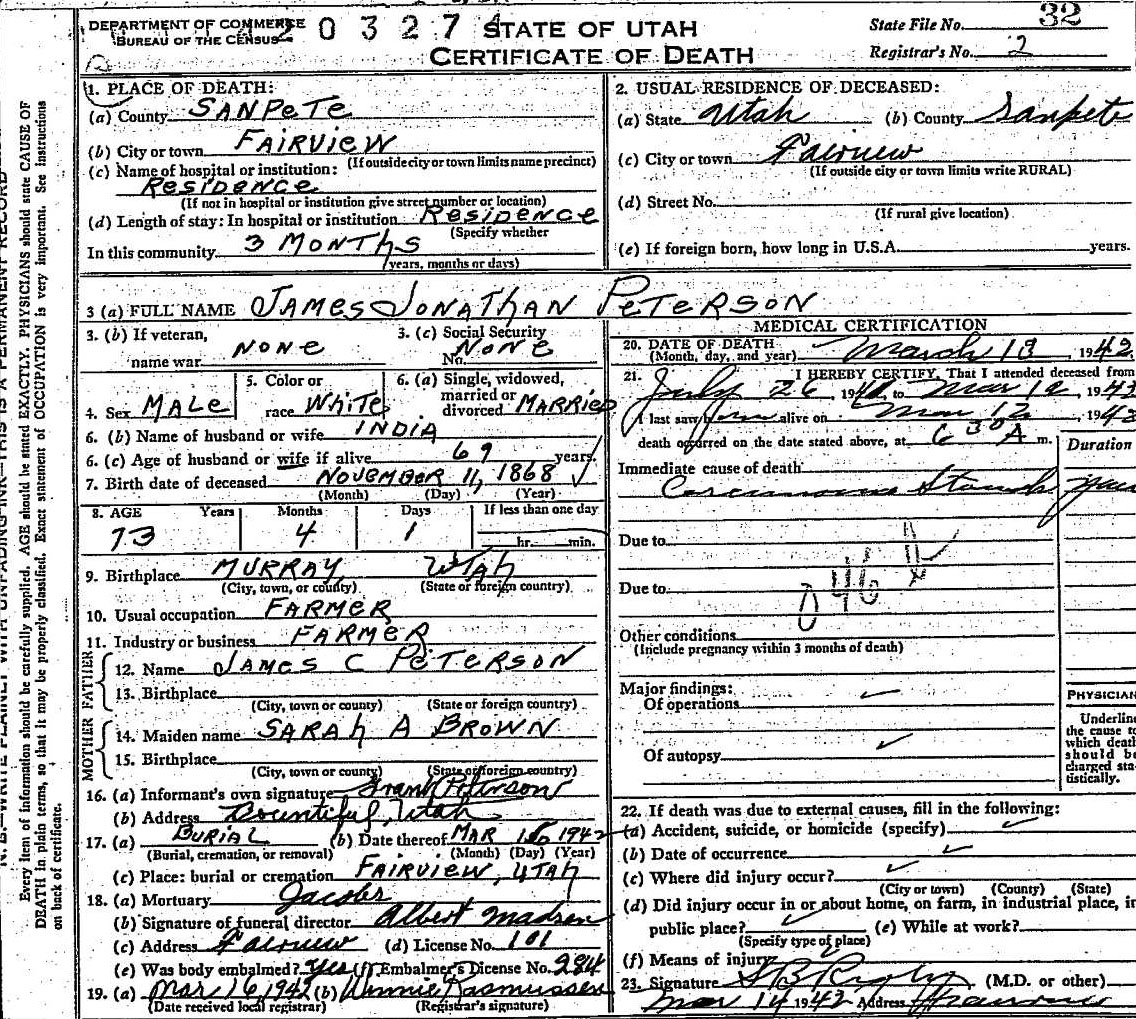 DEPARTMENT OF COMMERCE
BUREAU OF THE CENSUS
2 0 3 2 7 4
STATE OF UTAH
CERTIFICATE OF DEATH
State File No. 32
Registrar's No. 2
1. PLACE OF DEATH:
(a) County SANPETE
(b) City or town FAIRVIEW
(If outside city or town limits name precinct)
(c) Name of hospital or institution:
RESIDENCE
(If not in hospital or institution give street number or location)
(d) Length of stay: In hospital or institution RESIDENCE
(Specify whether
In this community 3 MONTHS
years, months or days)
2. USUAL RESIDENCE OF DECEASED:
(a) State Utah (b) County Sanpete
(c) City or town Fairview
(If outside city or town limits write RURAL)
(d) Street No.
(If rural give location)
(e) If foreign born, how long in U.S.A. years.
3 (a) FULL NAME JAMES JONATHAN PETERSON
3. (b) If veteran,
name war NONE
3. (c) Social Security
No. NONE
4. Sex MALE
5. Color or
race WHITE
6. (a) Single, widowed,
married or
divorced MARRIED
6. (b) Name of husband or wife INDIA
6. (c) Age of husband or wife if alive 69 years.
7. Birth date of deceased NOVEMBER 11, 1868
(Month) (Day) (Year)
8. AGE Years Months Days If less than one day
73 4 1 hr. min.
9. Birthplace MURRAY UTAH
(City, town, or county) (State or foreign country)
10. Usual occupation FARMER
11. Industry or business FARMER
FATHER
12. Name JAMES C PETERSON
13. Birthplace
(City, town or county) (State or foreign country)
MOTHER
14. Maiden name SARAH A BROWN
15. Birthplace
(City, town or county) (State or foreign country)
16. (a) Informant's own signature Frank Peterson
(b) Address Bountiful, Utah
17. (a) BURIAL (b) Date thereof MAR 1942
(Burial, cremation, or removal) (Month) (Day) (Year)
(c) Place: burial or cremation FAIRVIEW, UTAH
18. (a) Mortuary Jacobs
(b) Signature of funeral director Albert Madsen
(c) Address Fairview (d) License No. 101
(e) Was body embalmed? Yes (f) Embalmer's License No. 284
19. (a) Mar 16, 1942 (b) Winnie Rasmussen
(Date received local registrar) (Registrar's signature)
MEDICAL CERTIFICATION
20. DATE OF DEATH
(Month, day, and year) March 13, 1942
21. I HEREBY CERTIFY, That I attended deceased from
July 26 19 to Mar 12 194
I last saw him alive on Mar 12, 194
death occurred on the date stated above, at 6 30 A m.
Duration
Immediate cause of death
Carcinoma Stomach year
Due to
Due to
046
Other conditions
(Include pregnancy within 3 months of death)
Major findings:
Of operations
Of autopsy
PHYSICIAN
Underline
the cause to
which death
should be
charged sta-
tistically.
22. If death was due to external causes, fill in the following:
(a) Accident, suicide, or homicide (specify)
(b) Date of occurrence
(c) Where did injury occur?
(City or town) (County) (State)
(d) Did injury occur in or about home, on farm, in industrial place, in
public place? (e) While at work?
(Specify type of place)
(f) Means of injury
23. Signature (M.D. or other)
Mar 14 1942 Address Fairview
N. B.—WRITE PLAINLY WITH UNFADING INK—THIS IS A PERMANENT RECORD
Every item of information should be carefully supplied. AGE should be stated EXACTLY. PHYSICIANS should state CAUSE OF
DEATH in plain terms, so that it may be properly classified. Exact statement of OCCUPATION is very important. See instructions
on back of certificate.